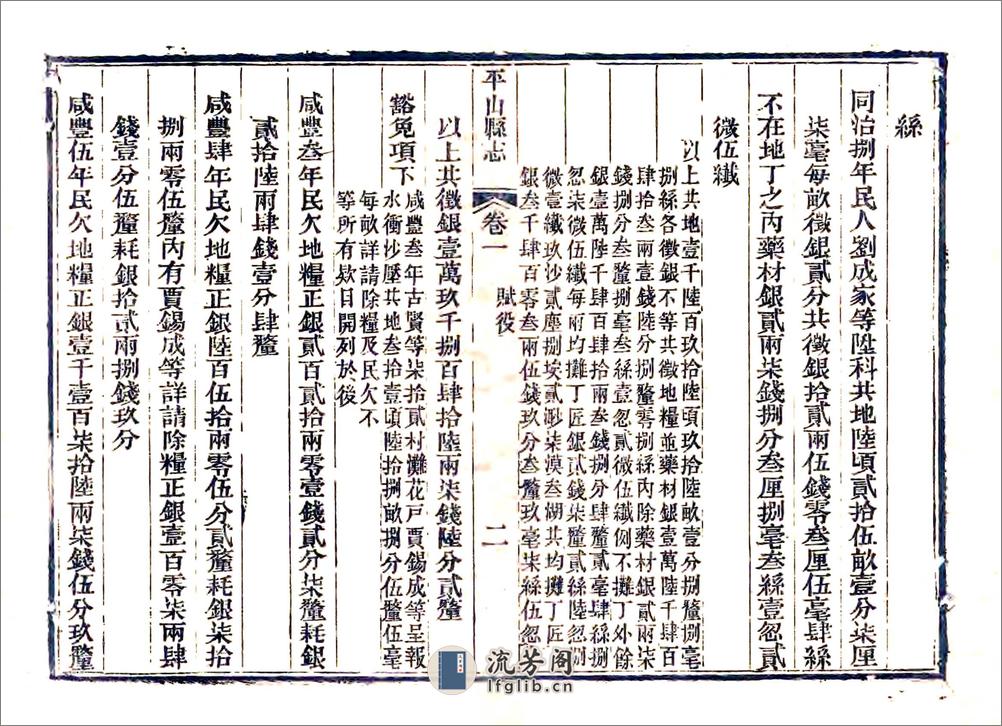 絲
同治捌年民人劉成家等陞科共地陸頃貳拾伍畝壹分柒厘
柒毫每畝徵銀貳分共徵銀拾貳兩伍錢零叁厘伍毫肆絲
不在地丁之內藥材銀貳兩柒錢捌分叁厘捌毫叁絲壹忽貳
微伍纖
以上共地壹千陸百玖拾陸頃玖拾陸畝壹分捌釐捌毫
捌絲各徵銀不等共徵地糧並藥材銀壹萬陸千肆百
肆拾叁兩壹錢陸分捌釐零捌絲內除藥材銀貳兩柒
錢捌分叁釐捌毫叁絲壹忽貳微伍纖例不攤丁外餘
銀壹萬陸千肆百肆拾兩叁錢捌分肆釐貳毫肆絲捌
忽柒微伍纖每兩均攤丁匠銀貳錢柒釐貳絲陸忽捌
微壹纖玖沙貳塵捌埃貳眇柒漠叁湖共均攤丁匠
銀叁千肆百零叁兩伍錢玖分叁釐玖毫柒絲伍忽
平山縣志
卷一
賦役
二
以上共徵銀壹萬玖千捌百肆拾陸兩柒錢陸分貳釐
豁免項下
咸豐叁年古賢等柒拾貳村灘花戸賈錫成等呈報
水衝沙壓共地叁拾壹頃陸拾捌畝捌分伍釐伍毫
每畝詳請除糧及民欠不
等所有欵目開列於後
咸豐叁年民欠地糧正銀貳百貳拾兩零壹錢貳分柒釐耗銀
貳拾陸兩肆錢壹分肆釐
咸豐肆年民欠地糧正銀陸百伍拾兩零伍分貳釐耗銀柒拾
捌兩零伍釐內有賈錫成等詳請除糧正銀壹百零柒兩肆
錢壹分伍釐耗銀拾貳兩捌錢玖分
咸豐伍年民欠地糧正銀壹千壹百柒拾陸兩柒錢伍分玖釐
流芳阁
lfglib.cn